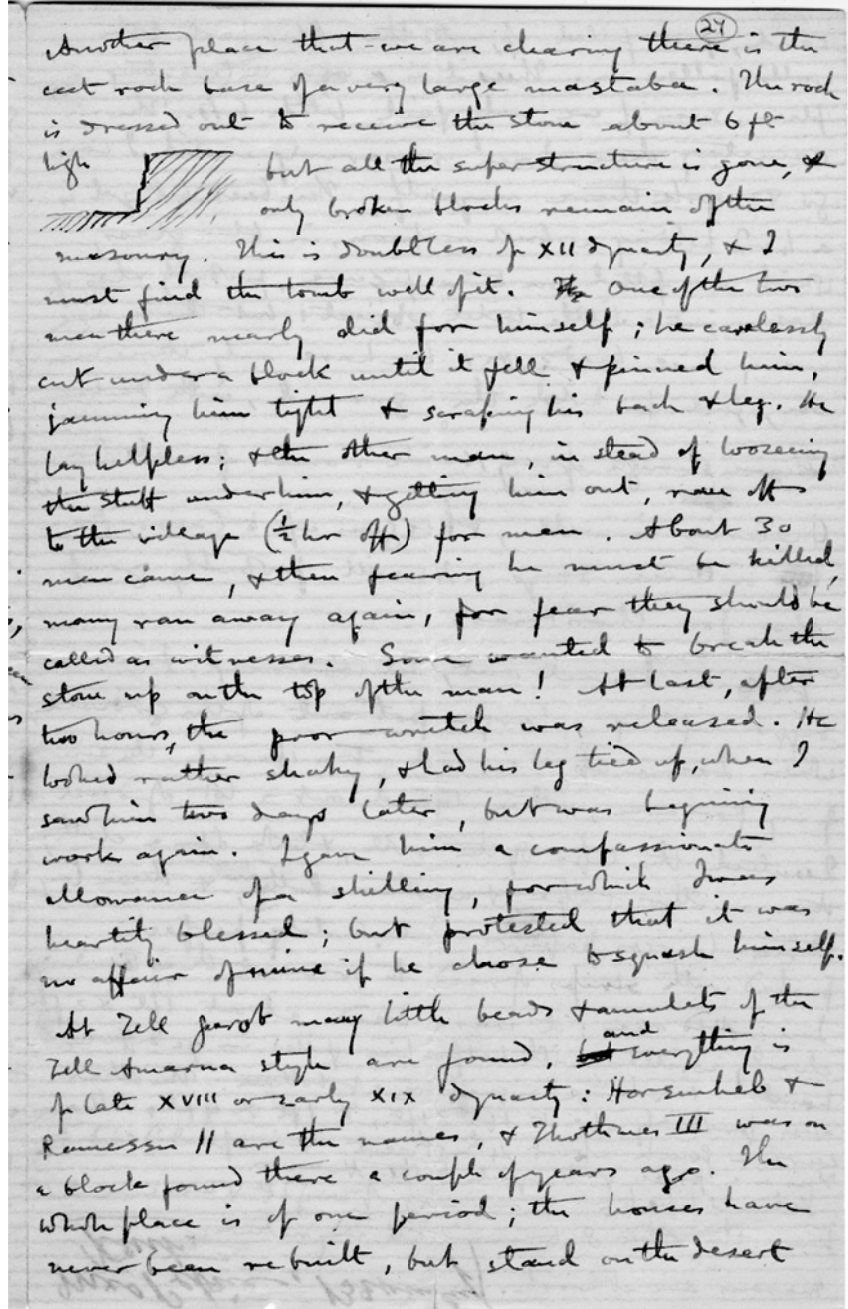 27
Another place that we are clearing there is the
cut rock base of a very large mastaba. The rock
is dressed out to receive the stone about 6 ft
high but all the superstructure is gone, &
only broken blocks remain of the
masonry. This is doubtless of XII dynasty, & I
must find the tomb well of it. One of the two
men there nearly did for himself; he carelessly
cut under a block until it fell & pinned him,
jamming him tight & scraping his back & leg. He
lay helpless; & the other man, in stead of loosening
the stuff under him, & getting him out, ran off
to the village (½ hr off) for men. About 30
men came, & then fearing he must be killed,
many ran away again, for fear they should be
called as witnesses. Some wanted to break the
stone up on the top of the man! At last, after
two hours, the poor wretch was released. He
looked rather shaky, & had his leg tied up, when I
saw him two days later, but was begining
work again. I gave him a compassionate
allowance of a shilling, for which I was
heartily blessed; but protested that it was
no affair of mine if he chose to squash himself.
At Tell Gurob many little beads & amulets of the
Tell Amarna style are found, and everything is
of late XVIII or early XIX dynasty: Horemheb &
Ramessu II are the names, & Thothmes III was on
a block found there a couple of years ago. The
whole place is of one period; the houses have
never been rebuilt, but stand on the desert